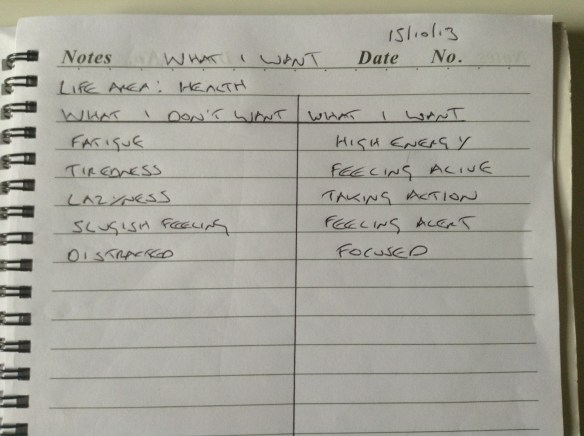 15/10/13
Notes WHAT I WANT Date No.
LIFE AREA: HEALTH
WHAT I DON'T WANT WHAT I WANT
FATIGUE HIGH ENERGY
TIREDNESS FEELING ALIVE
LAZYNESS TAKING ACTION
SLUGISH FEELING FEELING ALERT
DISTRACTED FOCUSED